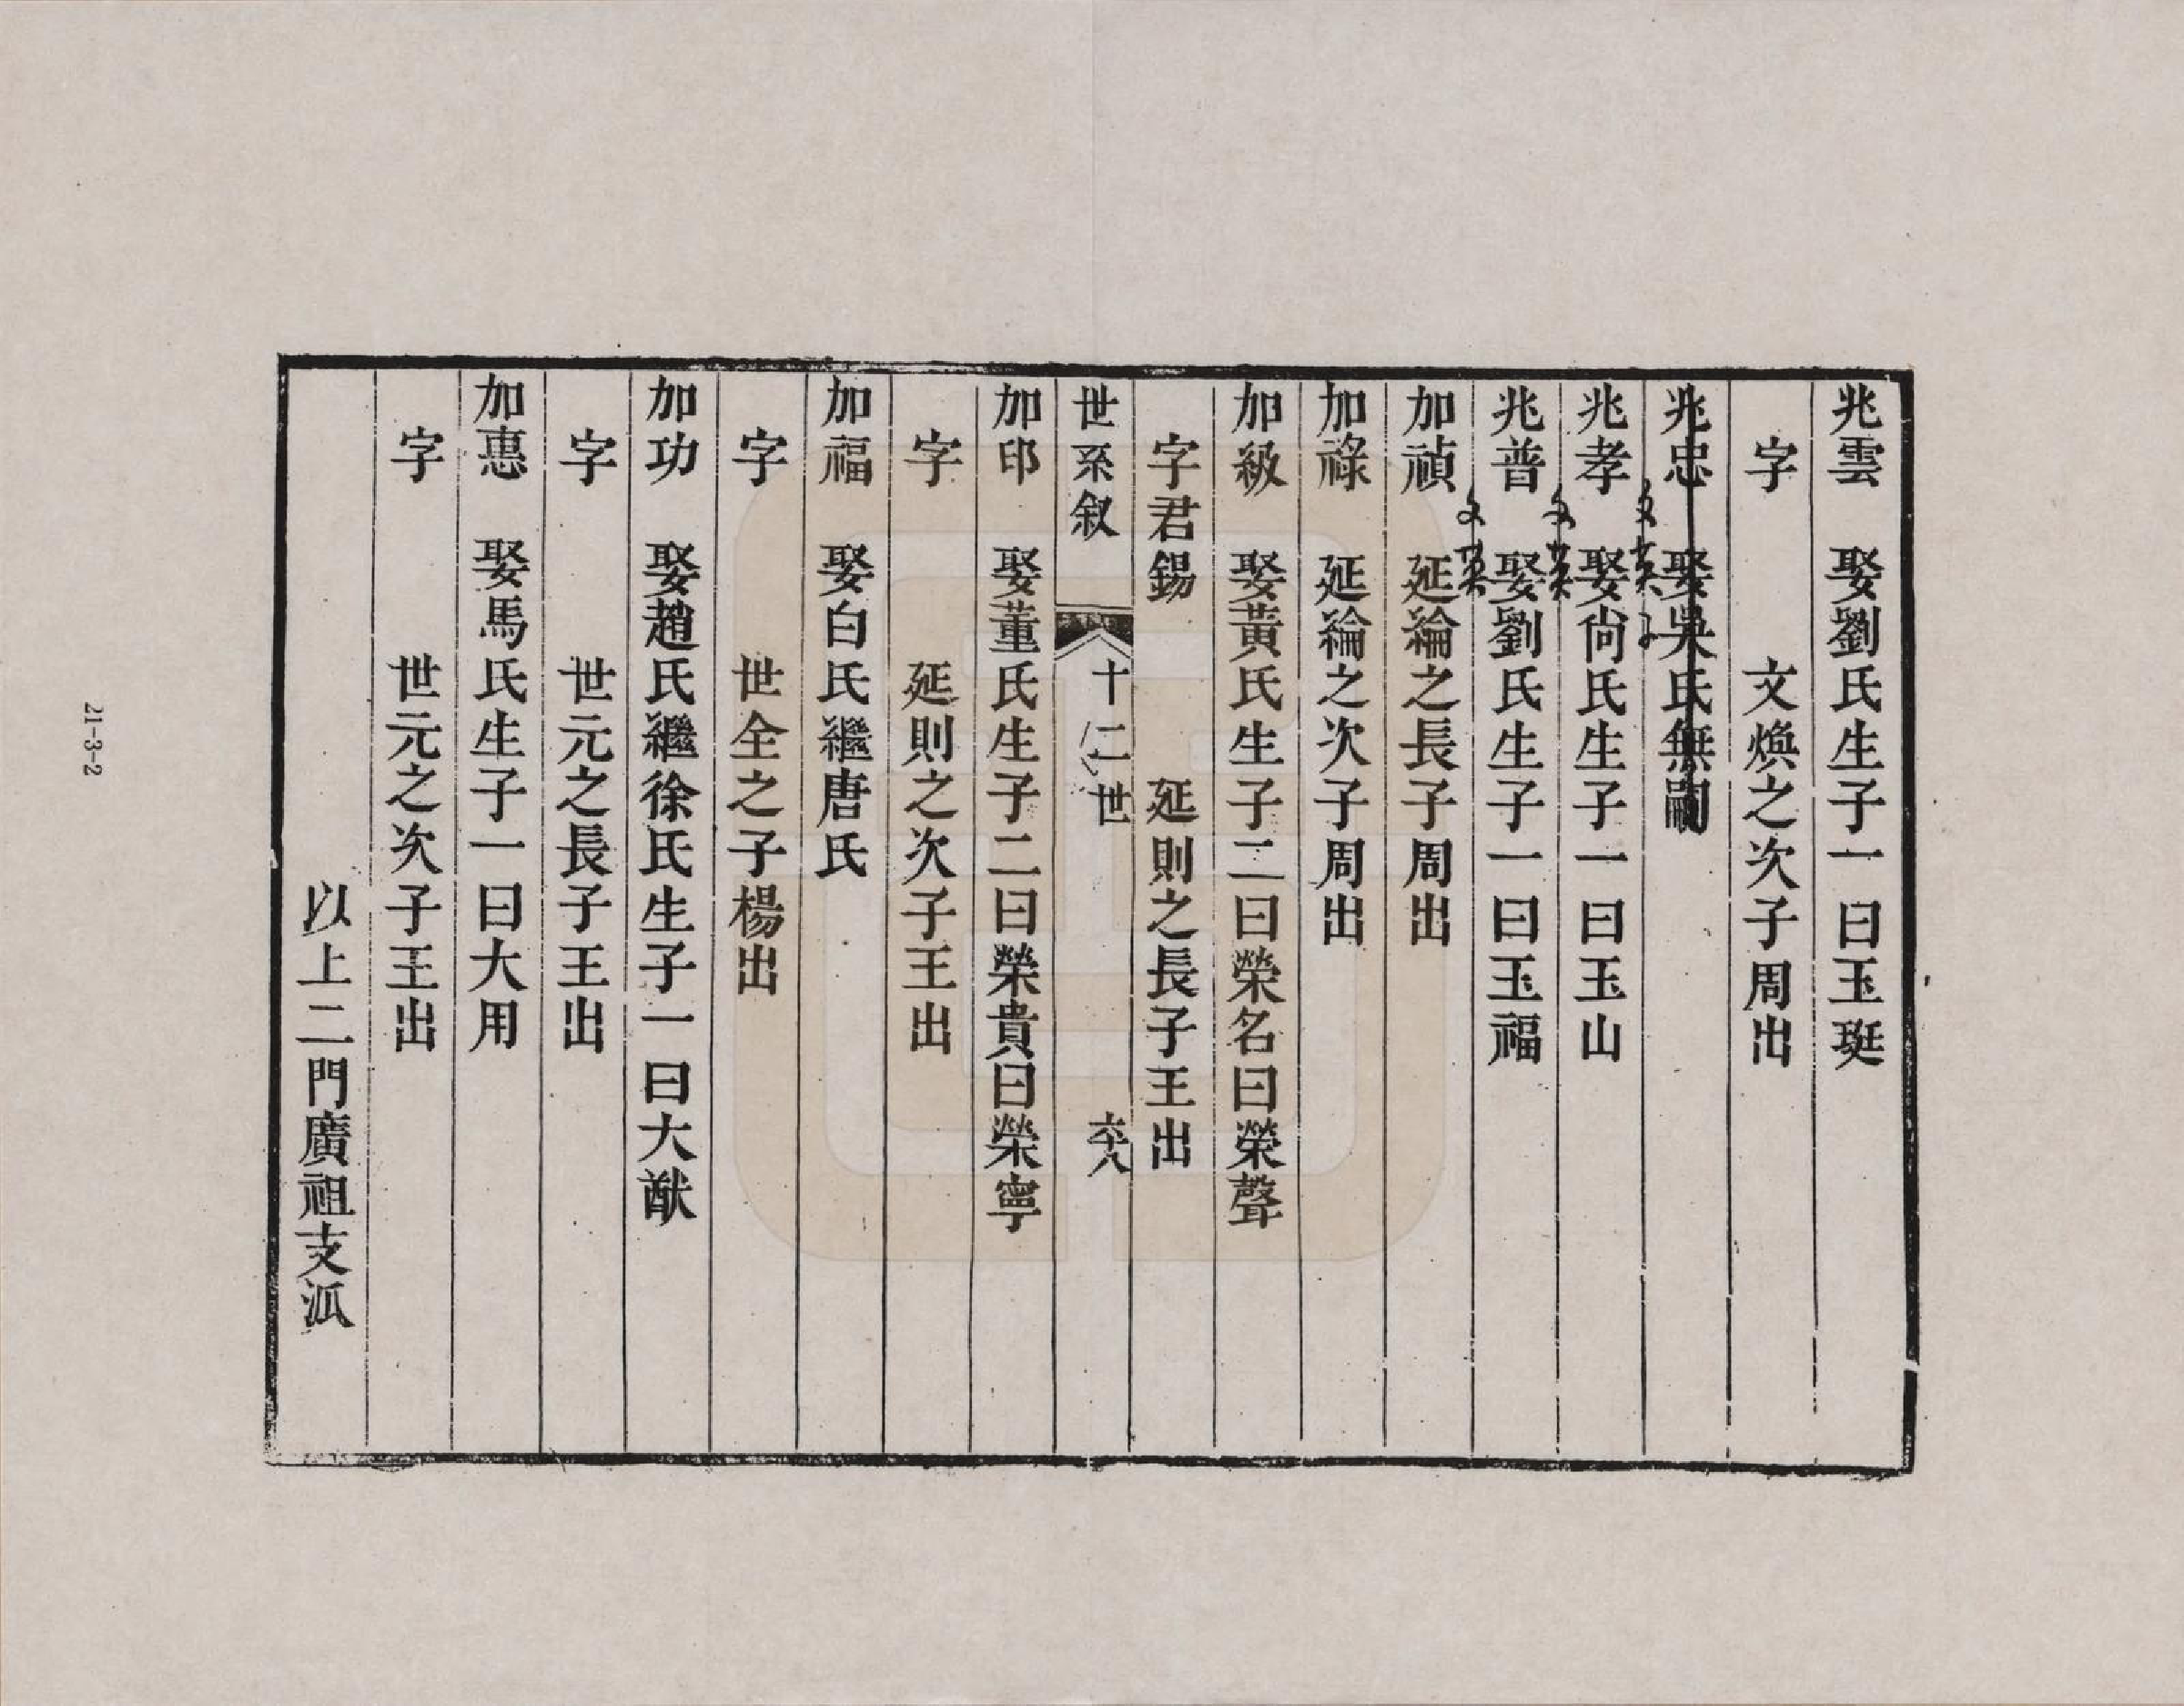 兆雲 娶劉氏生子一曰玉珽
字 文煥之次子周出
兆忠 娶吳氏無嗣
兆孝 娶尚氏生子一曰玉山
兆普 娶劉氏生子一曰玉福
加禎 延綸之長子周出
加祿 延綸之次子周出
加級 娶黃氏生子二曰榮名曰榮聲
字君錫 延則之長子王出
世系叙 十二世 六十八
加印 娶董氏生子二曰榮貴曰榮寧
字 延則之次子王出
加福 娶白氏繼唐氏
字 世全之子楊出
加功 娶趙氏繼徐氏生子一曰大猷
字 世元之長子王出
加惠 娶馬氏生子一曰大用
字 世元之次子王出
以上二門廣祖支派
21-3-2